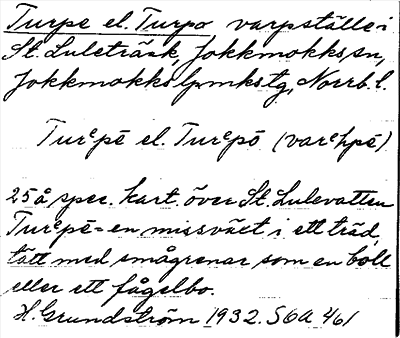 Turpe el. Turpo varpställe i
St. Luleträsk, Jokkmokks sn,
Jokkmokks lpmkstg, Norrb. l.
Turᵉpē el. Turᵉpō (varᵉhpē)
25 å spec. kart. över St. Lulevatten
Turᵉpē = en missväxt i ett träd,
tätt med smågrenar som en boll
eller ett fågelbo.
H. Grundström 1932. S6A 461